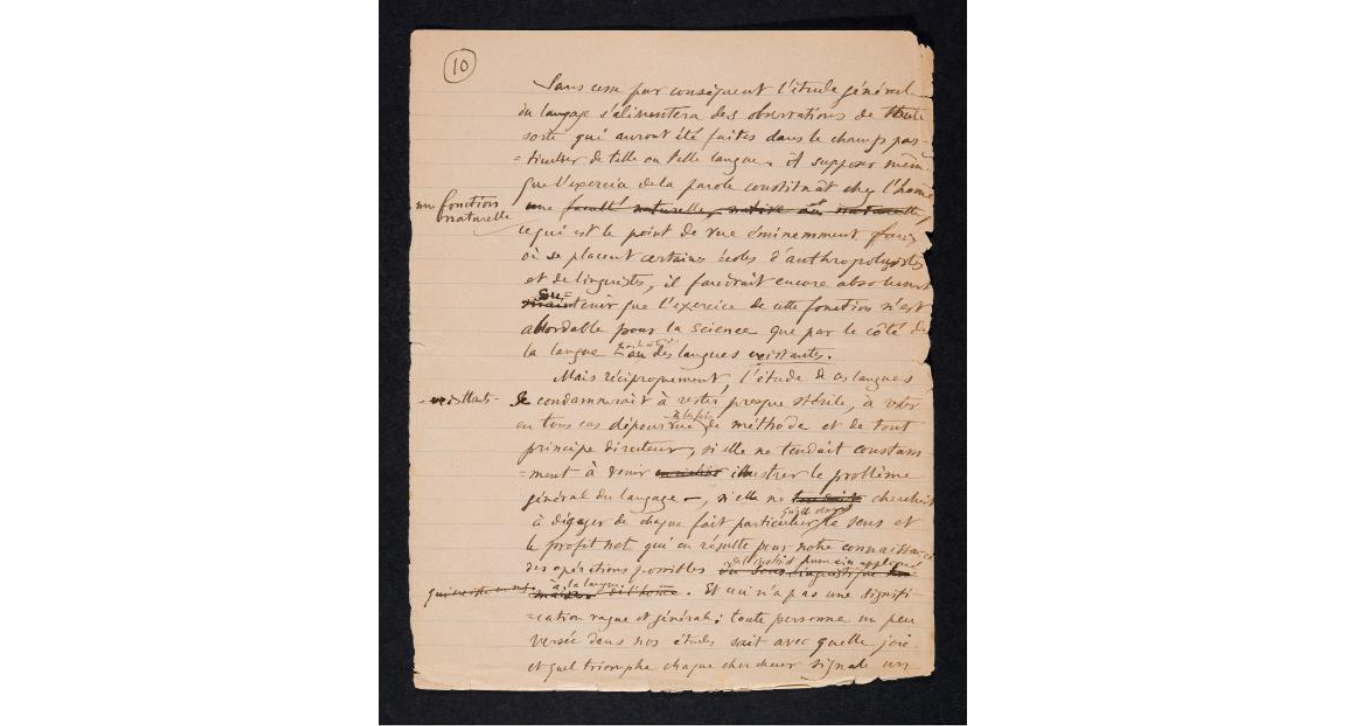 10
Sans cesse par conséquent l'étude générale
du langage s'alimentera des observations de toute
sorte qui auront été faites dans le champ par-
=ticulier de telle ou telle langue. A supposer même
que l'exercice de la parole constituât chez l'homme
une fonction
naturelle
une faculté naturelle,
ce qui est le point de vue éminemment faux
où se placent certaines écoles d'anthropologistes
et de linguistes, il faudrait encore absolument
sou=
maintenir que l'exercice de cette fonction n'est
abordable pour la science que par le côté de
la langue ou des langues existantes.
Mais réciproquement, l'étude de ces langues
existantes se condamnerait à rester presque stérile, à rester
en tous cas dépourvue à la fois de méthode et de tout
principe directeur, si elle ne tendait constam
=ment à venir illustrer le problème
général du langage –, si elle ne cherchait
à dégager de chaque fait particulier qu'elle observe le sens et
le profit net qui en résulte pour notre connaissance
des opérations possibles de l'instinct humain appliqué
du sens linguistique
à la langue. Et ceci n'a pas une signifi
=cation vague et générale; toute personne un peu
versée dans nos études sait avec quelle joie
et quel triomphe chaque chercheur signale un